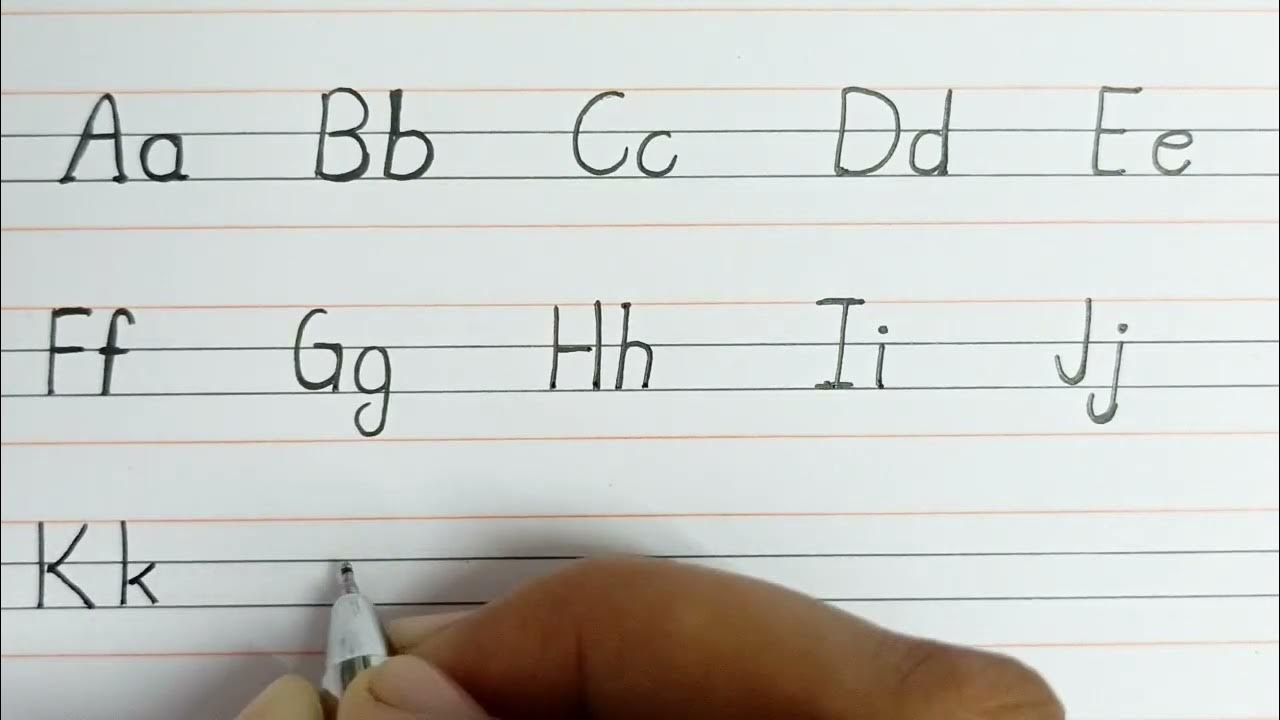 Aa Bb Cc Dd Ee
Ff Gg Hh Ii Jj
Kk